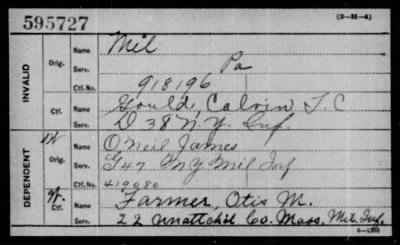 595727
(3-H-4)
INVALID
Orig.
Name Mil
Serv. Pa
Ctf. No. 918196
Ctf.
Name Gould, Calvin T. C
Serv. D 38 N.Y. Inf.
DEPENDENT
Orig.
Name O'Neil James
Serv. G 47 N Y Mil Inf
Ctf. No. 419080
Ctf.
Name Farmer, Otis M.
Serv. 22 Unattch'd Co. Mass. Mil. Inf.